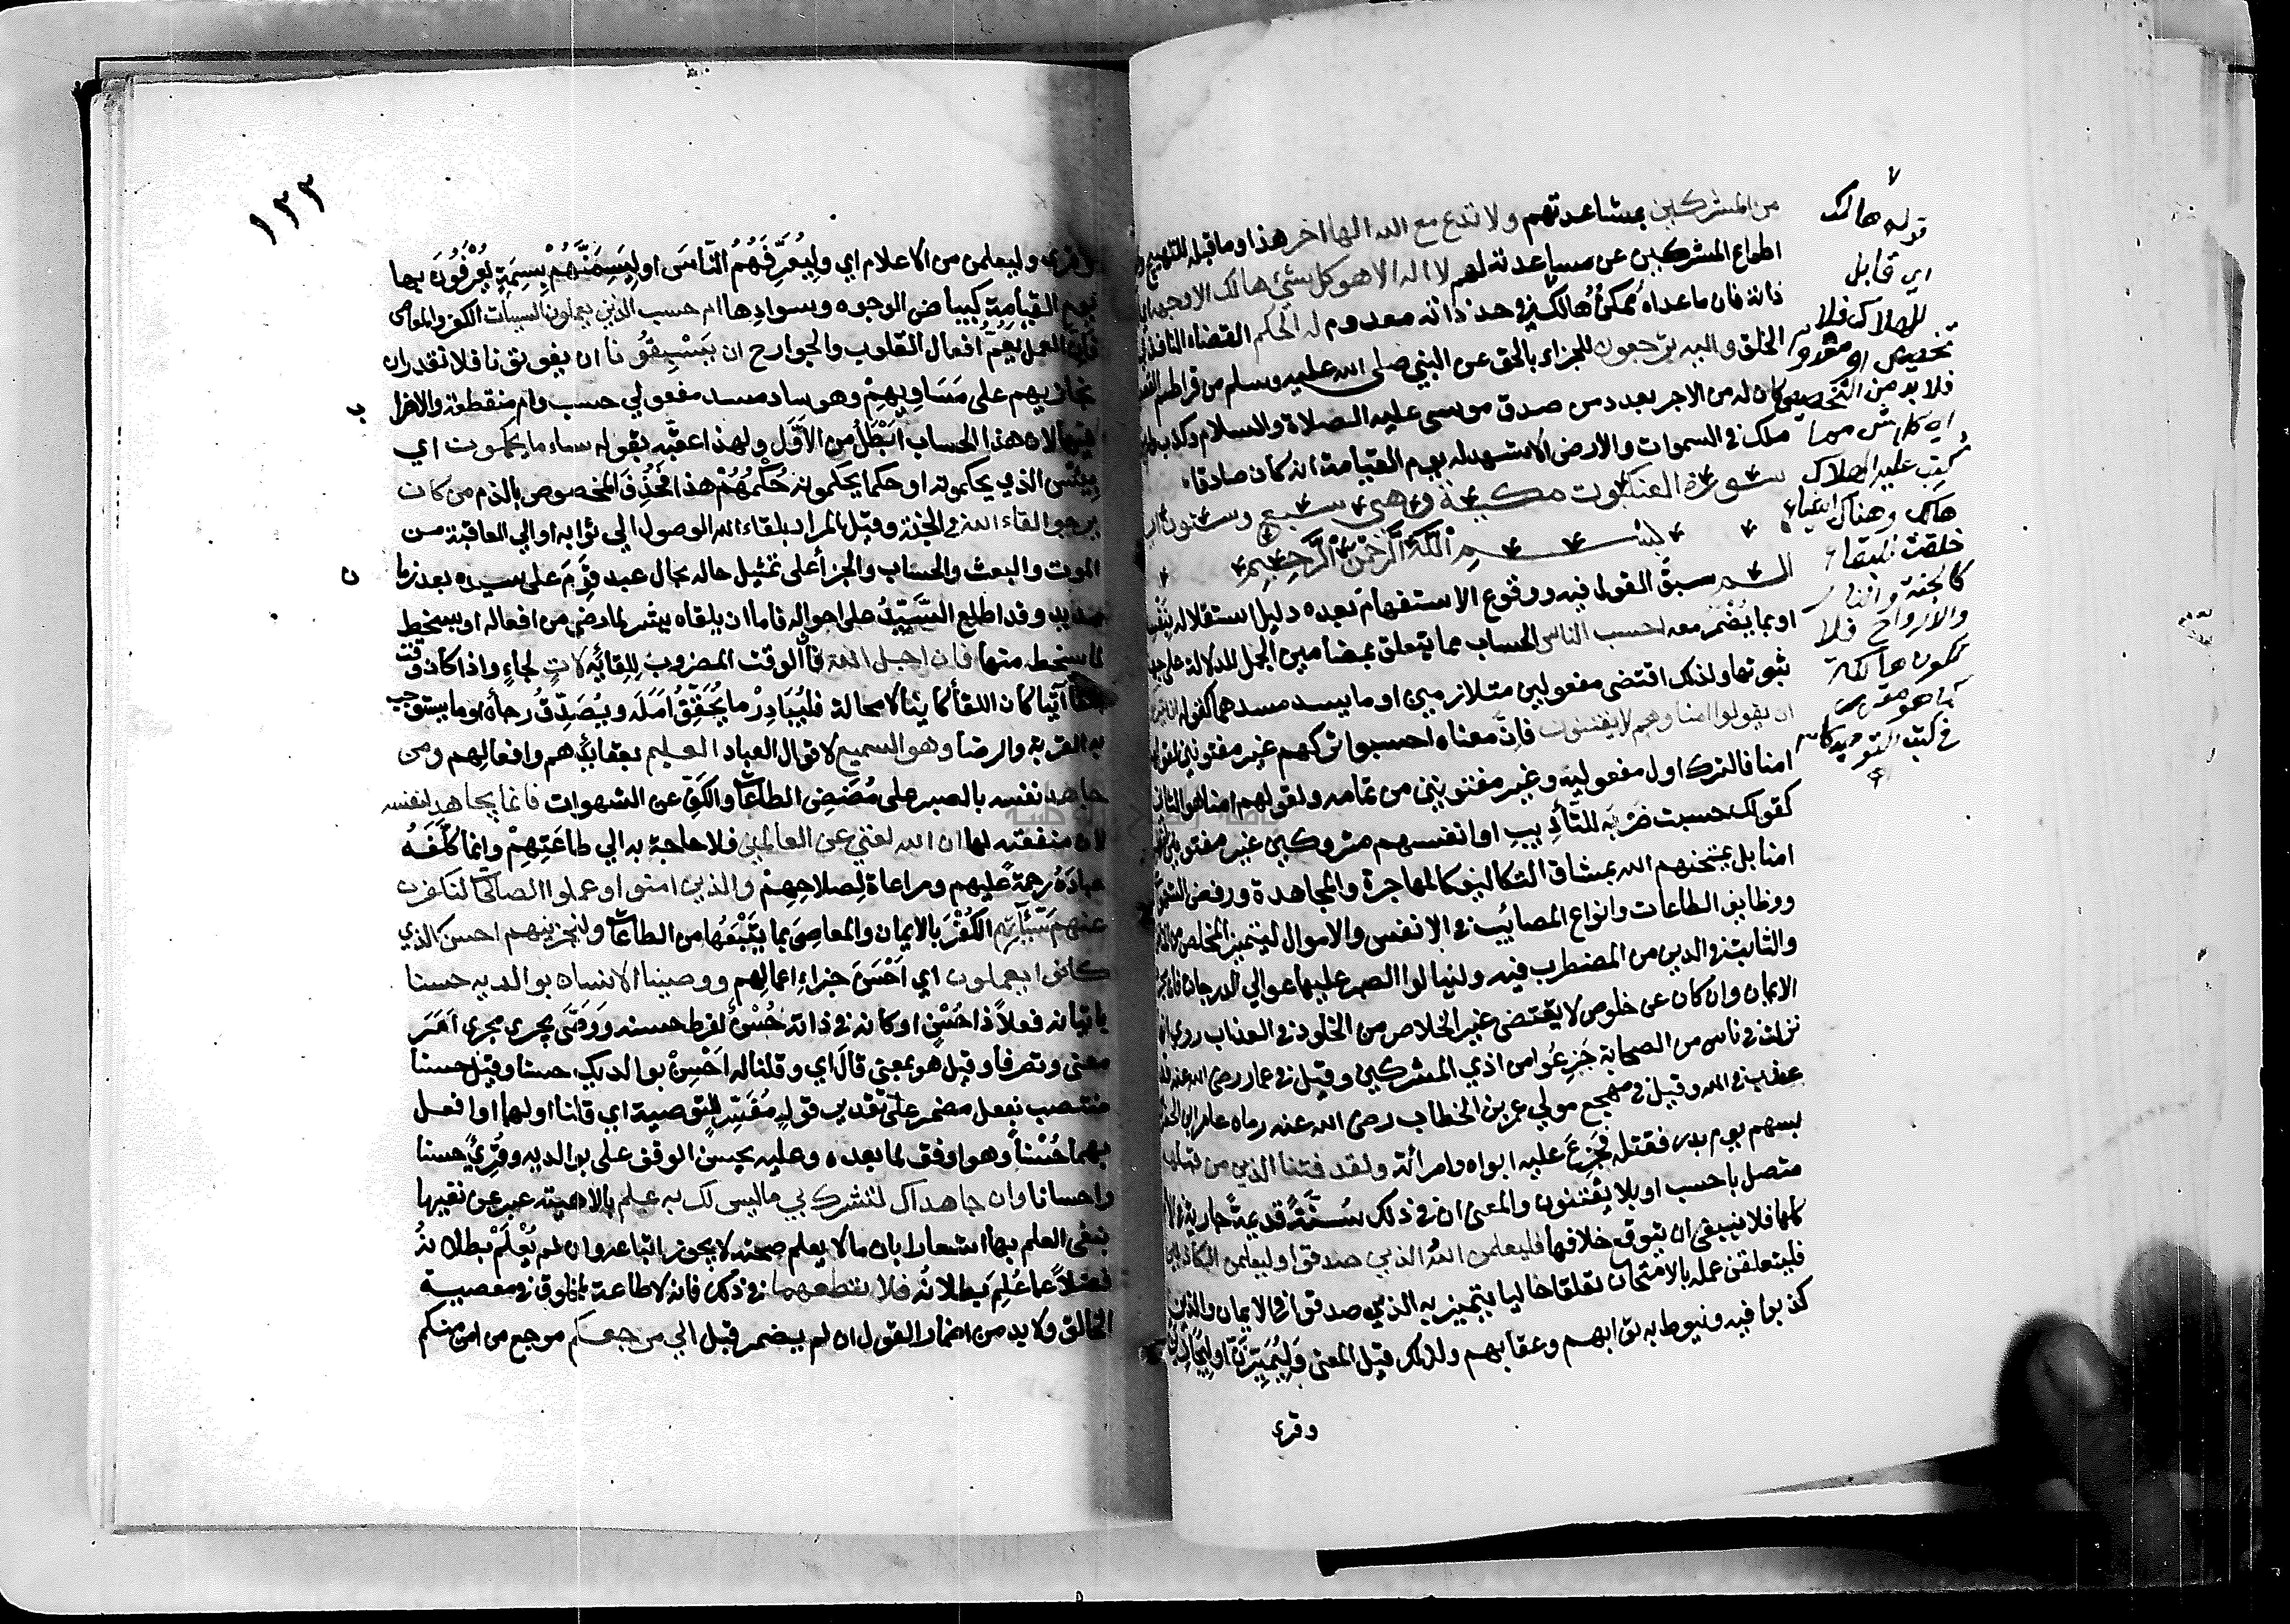 من المشركين بمشاعدتهم ولا تدع مع الله الها اخر هذا وما قبله للتهييج و
اطماع المشركين عن مساعدته لهم لا اله الا هو كل شئ هالك الا وجهه
ذاته فان ماعداه ممكن هالك في حد ذاته معدوم له الحكم القضاء النافذ في
الخلق واليه ترجعون للجزاء بالحق عن النبي صلى الله عليه وسلم من قرا طسم القصص
كان له من الاجر بعدد من صدق موسى عليه الصلاة والسلام وكذب به
ملك في السموات والارض الا شهد له يوم القيامة انه كان صادقا
سورة العنكبوت مكية وهي سبع وستون
بسم الله الرحمن الرحيم
الم سبق القول فيه ووقوع الاستفهام بعده دليل استقلاله بنفسه
او بما يضمر معه احسب الناس الحساب مما يتعلق بمضامين الجمل للدلالة على جهة
ثبوتها ولذلك اقتضى مفعولين متلازمين او ما يسد مسدهما كقوله ان يتركوا
ان يقولوا امنا وهم لا يفتنون فان معناه احسبوا تركهم غير مفتونين لقولهم
امنا فالترك اول مفعوليه وغير مفتونين من تمامه ولقولهم امنا هو الثاني
كقولك حسبت ضربه للتأديب او انفسهم متروكين غير مفتونين
امنا بل يمتحنهم الله بمشاق التكاليف كالمهاجرة والمجاهدة ورفض الشهوات
ووظايف الطاعات وانواع المصائب في الانفس والاموال ليتميز المخلص من
والثابت في الدين من المضطرب فيه ولينالوا بالصبر عليها عوالي الدرجات فان
الايمان وان كان عن خلوص لا يقتضى غير الخلاص من الخلود في العذاب روي انها
نزلت في ناس من الصحابة جزعوا من اذي المشركين وقيل في عمار رضى الله عنه
عذب في الله وقيل في مهجع مولي عمر بن الخطاب رضى الله عنه رماه عامر ابن
بسهم يوم بدر فقتله فجزع عليه ابواه وامرأته ولقد فتنا الذين من قبلهم
متصل باحسب او بلا يفتنون والمعنى ان ذلك سنة قديمة جارية في الامم
كلها فلا ينبغي ان يتوقع خلافها فليعلمن الله الذين صدقوا وليعلمن الكاذبين
فليتعلقن علمه بالامتحان تعلقا حاليا يتميز به الذين صدقوا في الايمان والذين
كذبوا فيه وينوط به ثوابهم وعقابهم ولذلك قيل المعنى وليميزن او ليجازين
وقرئ
قوله هالك
اي قابل
للهلاك فلا
تخصيص او مقدر
فلا بد من التخصيص
اي كل شئ مما
كتب عليه الهلاك
هالك وهناك اشياء
خلقت للبقاء
كالجنة والنار
والارواح فلا
تكون هالكة
كما هو مقرر
في كتب التوحيد
١٣٣
وليعلمن من الاعلام اي وليعرفهم الناس او ليسمنهم بسمة يعرفون بها
يوم القيامة كبياض الوجوه وسوادها ام حسب الذين يعملون السيئات الكفر والمعاصى
فان العمل يعم افعال القلوب والجوارح ان يسبقونا ان يفوتونا فلا نقدر ان
نجازيهم على مساويهم وهو ساد مسد مفعولي حسب وام منقطعة والاضراب
فيها لان هذا الحساب ابطل من الاول ولهذا عقبه بقوله ساء ما يحكمون اي
بئس الذي يحكمونه او حكما يحكمونه حكمهم هذا فحذف المخصوص بالذم من كان
يرجوا لقاء الله في الجنة وقيل المراد بلقاء الله الوصول الي ثوابه او الي العاقبة من
الموت والبعث والحساب والجزا على تمثيل حاله بحال عبد قدم على سيده بعد زمان
مديد وقد اطلع السيد على احواله فاما ان يلقاه ببشر لما رضى من افعاله او بسخط
لما سخط منها فان اجل الله فان الوقت المضروب للقائه لات لجاء واذا كان وقت
اللقا آتيا كان اللقأ كائنا لا محالة فليبادر ما يحقق امله ويصدق رجاه او ما يستوجب
به القربة والرضا وهو السميع لاقوال العباد العليم بعقائدهم وافعالهم ومن
جاهد نفسه بالصبر على مضض الطاعات والكف عن الشهوات فانما يجاهد لنفسه
لان منفعته لها ان الله لغني عن العالمين فلا حاجة به الي طاعتهم وانما كلفه
عباده رحمة عليهم ومراعاة لصلاحهم والذين امنوا وعملوا الصالحات لنكفرن
عنهم سيآتهم الكفر بالايمان والمعاصى بما يتبعها من الطاعات ولنجزينهم احسن الذي
كانوا يعملون اي احسن جزاء اعمالهم ووصينا الانسان بوالديه حسنا
بايتائه فعلا ذا حسن او كانه في ذاته حسن لفرط حسنه ووصى يجري مجرى امر
معنى وتصرفا وقيل هو بمعنى قال اي وقلنا له احسن بوالديك حسنا وقيل حسنا
منتصب بفعل مضمر على تقدير قول مفسر للتوصية اي قلنا اولهما او افعل
بهما حسنا وهو اوفق لما بعده وعليه يحسن الوقف على بوالديه وقرئ حسنا
واحسانا وان جاهداك لتشرك بي ما ليس لك به علم بالاهيته عبر عن نفيها
بنفي العلم بها اشعارا بان ما لا يعلم صحته لا يجوز اتباعه وان لم يعلم بطلانه
فضلا عما علم بطلانه فلا تطعهما في ذلك فانه لا طاعة لمخلوق في معصية
الخالق ولا بد من اضمار القول ان لم يضمر قبل الي مرجعكم مرجع من امن منكم